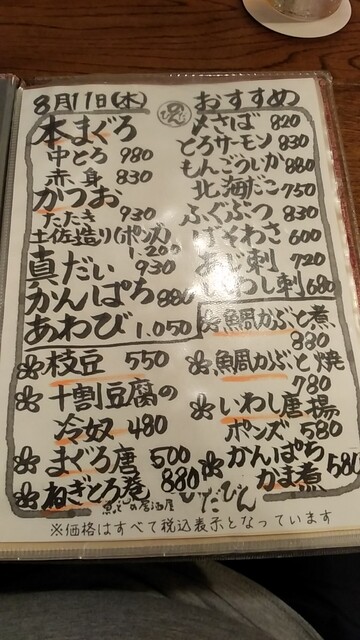 8月11日(木) おすすめ
本まぐろ
中とろ 980
赤身 830
かつお
たたき 930
土佐造り(ポンズ)
1.200
真だい 930
かんぱち 880
あわび 1.050
〆さば 820
とろサーモン 830
もんごういか 880
北海だこ 750
ふぐぶつ 830
600
刺 720
いわし刺 680
鯛かぶと煮
880
鯛かぶと焼
780
いわし唐揚
ポンズ 580
かんぱち
かま煮 580
枝豆 550
十割豆腐の
冷奴 480
まぐろ唐 500
ねぎとろ巻 880
魚と酒の居酒屋 びだびん
※価格はすべて税込表示となっています